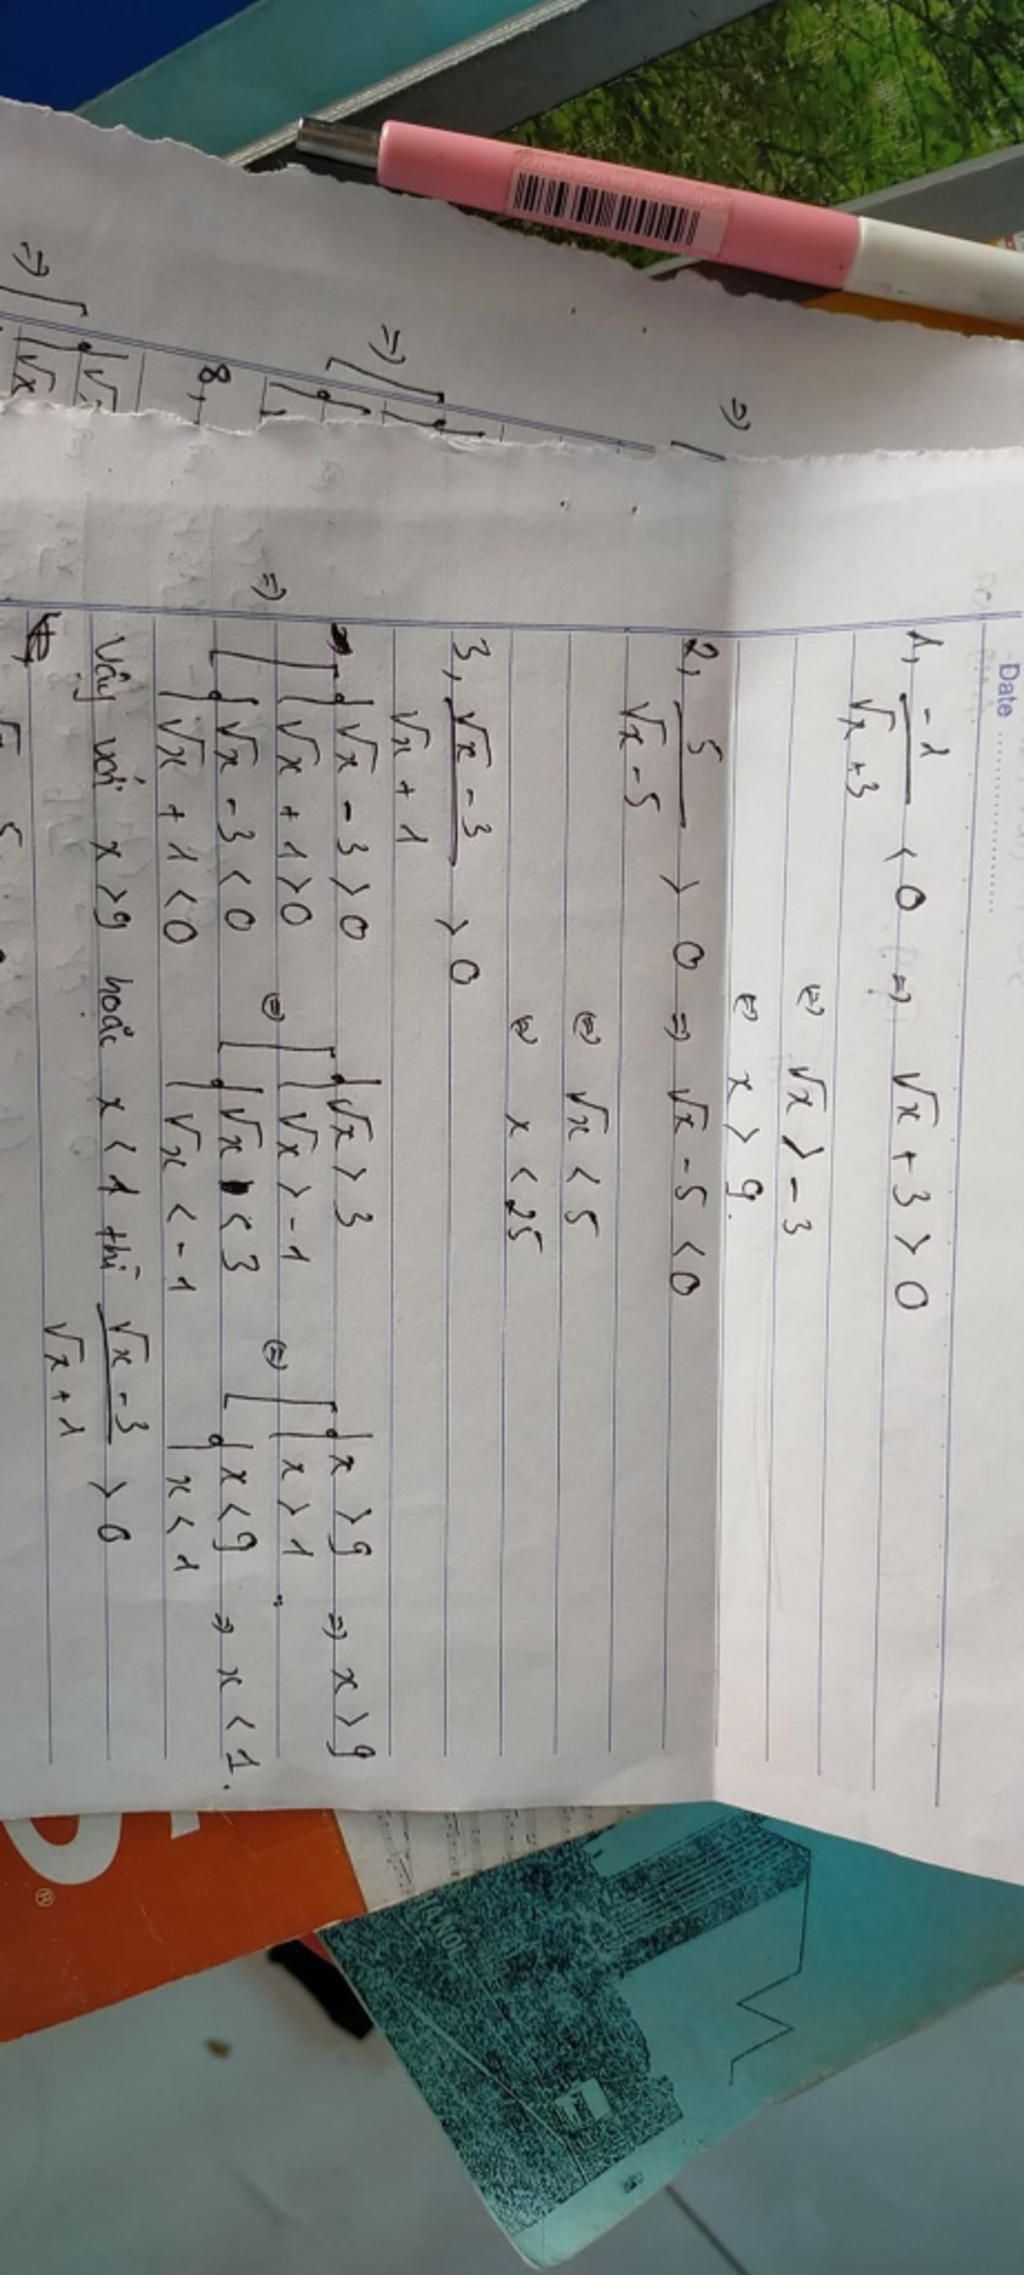 Date
1, -1/(√x + 3) < 0 => √x + 3 > 0
<=> √x > -3
<=> x > 9.
2, 5/(√x - 5) > 0 => √x - 5 < 0
<=> √x < 5
<=> x < 25
3, (√x - 3)/(√x + 1) > 0
√x - 3 > 0 √x > 3 x > 9 => x > 9
=> √x + 1 > 0 <=> √x > -1 <=> x > 1
√x - 3 < 0 √x < 3 x < 9 => x < 1.
√x + 1 < 0 √x < -1 x < 1
Vậy với x > 9 hoặc x < 1 thì (√x - 3)/(√x + 1) > 0
=>
=>
8,
=>
√x